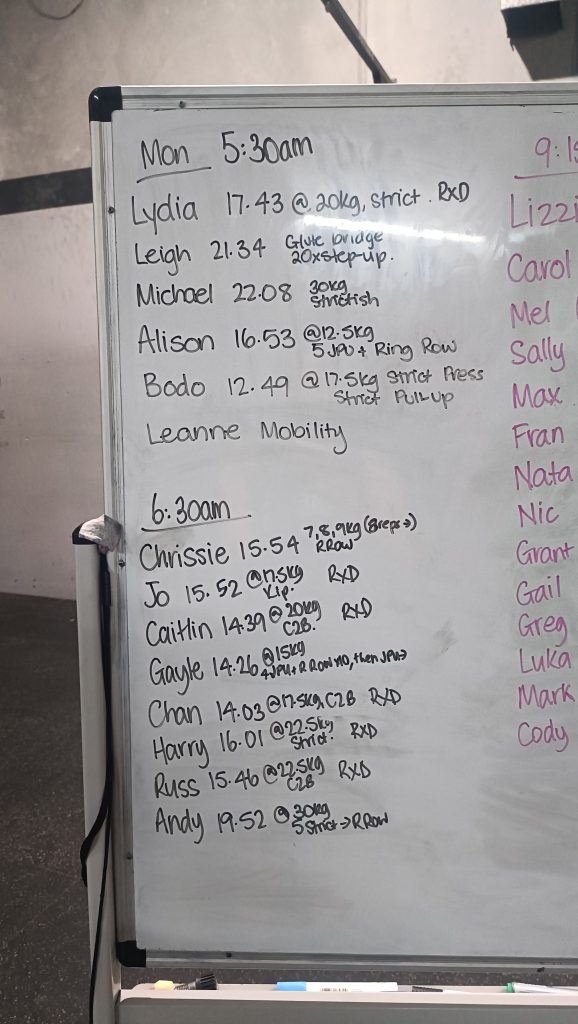 Mon 5:30am
Lydia 17.43 @ 20kg, strict. RXD
Leigh 21.34 Glute bridge
20xstep-up.
Michael 22.08 30kg
strictish
Alison 16.53 @12.5kg
5 JPU + Ring Row
Bodo 12.49 @17.5kg Strict Press
Strict Pull-up
Leanne Mobility
6:30am
Chrissie 15.54 7,8,9kg (8reps→)
RRow
Jo 15.52 @17.5kg RXD
Kip.
Caitlin 14.39 @20kg RXD
C2B.
Gayle 14.26 @15kg
4JPU+RRow x10, then JPU→
Chan 14.03 @17.5kg C2B RXD
Harry 16.01 @22.5kg RXD
Strict.
Russ 15.46 @22.5kg RXD
C2B
Andy 19.52 @30kg
5 Strict→RRow
9:15
Lizzi
Carol
Mel
Sally
Max
Fran
Nata
Nic
Grant
Gail
Greg
Luka
Mark
Cody